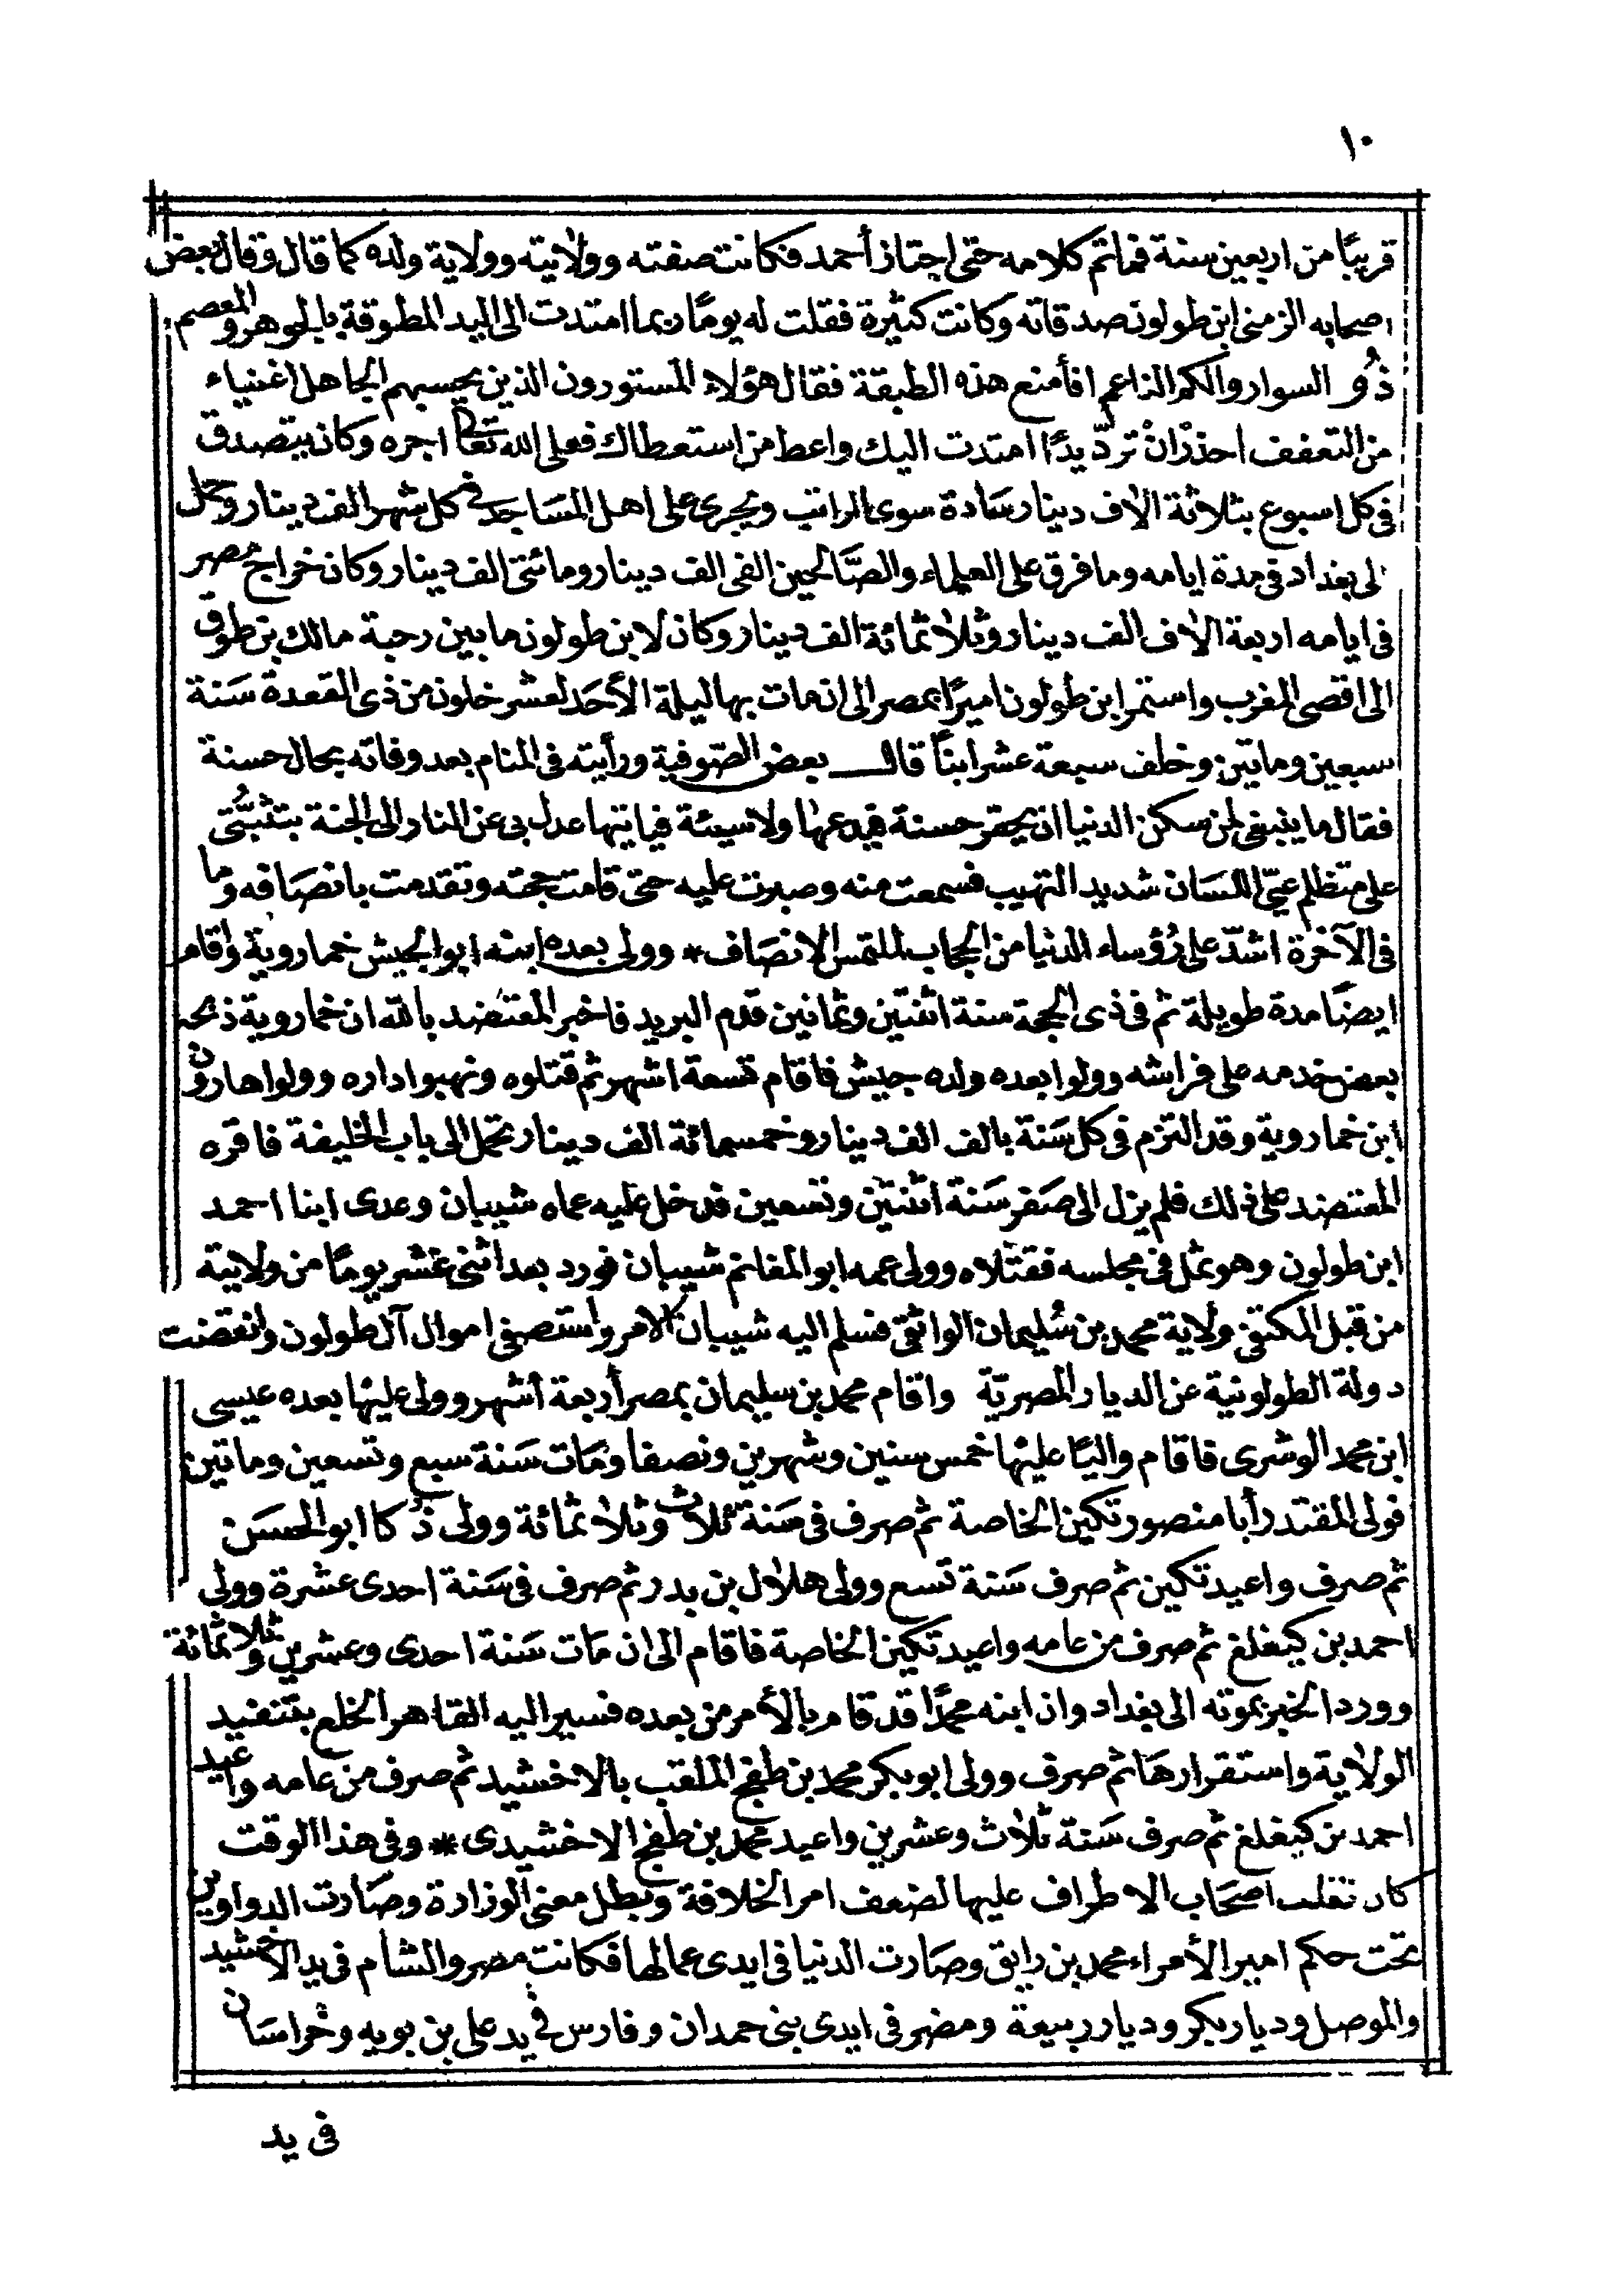 ١٠
قريبًا من اربعين سنة فما تم كلامه حتى اجتاز أحمد فكانت صفته وولايته وولاية ولده كما قال وقال بعض
اصحابه الزمنى ابن طولون صدقاته وكانت كثيرة فقلت له يومًا ربما امتدت الى اليد المطوقة بالجوهر والمعصم
ذو السوار والكم الناعم افأمنع هذه الطبقة فقال هؤلاء المستورون الذين يحسبهم الجاهل اغنياء
من التعفف احذر ان تردّ يدًا امتدت اليك واعط من استعطاك فعلى الله تعالى اجره وكان يتصدق
فى كل اسبوع بثلاثة الاف دينار سَادة سوى الراتب ويجرى على اهل المسَاجد فى كل شهر الف دينار وحمل
لى بغداد فى مدة ايامه وما فرق على العلماء والصَّالحين الفى الف دينار ومائتى الف دينار وكان خراج مصر
فى ايامه اربعة الاف الف دينار وثلاثمائة الف دينار وكان لابن طولون ما بين رحبة مالك بن طوق
الى اقصى المغرب واستمر ابن طولون اميرًا بمصر الى ان مات بها ليلة الأحَد لعشر خلون من ذى القعدة سَنة
سبعين وماتين وخلف سبعة عشر ابنًا قال بعض الصّوفية ورأيته فى المنام بعد وفاته بحال حسنة
فقال ما ينبغى لمن سكن الدنيا ان يحقر حسنة فيدعها ولا سيئة فياتيها عدل بى عن النار الى الجنة بتثبُّتى
على متظلم عيىّ اللسَان شديد التهيب فسمعت منه وصبرت عليه حتى قامت حجته وتقدمت بانصَافه وما
فى الآخرة اشدّ على رُؤساء الدنيا من الحجاب للتمس الانصَاف * وولى بعده ابنه ابو الجيش خمارويةواقام
ايضًا مدة طويلة ثم فى ذى الحجة سنة اثنتين وثمانين قدم البريد فاخبر المعتضد بالله ان خماروية ذبحه
بعض خدمه على فراشه وولوا بعده ولده جيش فاقام تسعة اشهر ثم قتلوه ونهبوا داره وولوا هارون
ابن خماروية وقد التزم فى كل سَنة بالف الف دينار وخمسمائة الف دينار تحمل الى باب الخليفة فاقره
المعتضد على ذلك فلم يزل الى صَفر سَنة اثنتين وتسعين فدخل عليه عماه شيبان وعدى ابنا احمد
ابن طولون وهو ثمل فى مجلسه فقتلاه وولى عمه ابو المغانم شيبان فورد بعد اثنى عشر يومًا من ولايته
من قبل المكتفى ولاية محمد بن سُليمان الواثقى فسلم اليه شيبان الامر واستصفى اموال آل طولون وانقضت
دولة الطولونية عن الديار المصريّة واقام محمد بن سليمان بمصر أربعة أشهر وولى عليها بعده عيسى
ابن محمد الوشرى فاقام واليًا عليها خمس سنين وشهرين ونصفا ومَات سَنة سبع وتسعين وماتين
فولى المقتدر أبا منصور تكين الخاصة ثم صرف فى سَنة ثلاث وثلاثمائة وولى ذُكا ابو الحسَن
ثم صرف واعيد تكين ثم صرف سَنة تسع وولى هلال بن بدر ثم صرف فى سَنة احدى عشرة وولى
احمد بن كيغلغ ثم صرف من عامه واعيد تكين الخاصة فاقام الى ان مَات سَنة احدى وعشرين وثلاثمائة
وورد الخبر بموته الى بغداد وان ابنه محمدًا قد قام بالأمر من بعده فسير اليه القاهر الخلع بتنفيد
الولاية واستقرارهَا ثم صرف وولى ابو بكر محمد بن طغج الملقب بالاخشيد ثم صرف من عامه واعيد
احمد بن كيغلغ ثم صرف سَنة ثلاث وعشرين واعيد محمد بن طغج الاخشيدى * وفى هذا الوقت
كان تغلب اصحَاب الاطراف عليها لضعف امر الخلافة وبطل معنى الوزارة وصَارت الدواوين
تحت حكم امير الأمراء محمد بن رايق وصَارت الدنيا فى ايدى عمالها فكانت مصر والشام فى يد الاخشيد
والموصل وديار بكر وديار ربيعة ومضر فى ايدى بنى حمدان وفارس فى يد على بن بويه وخراسَان
فى يد